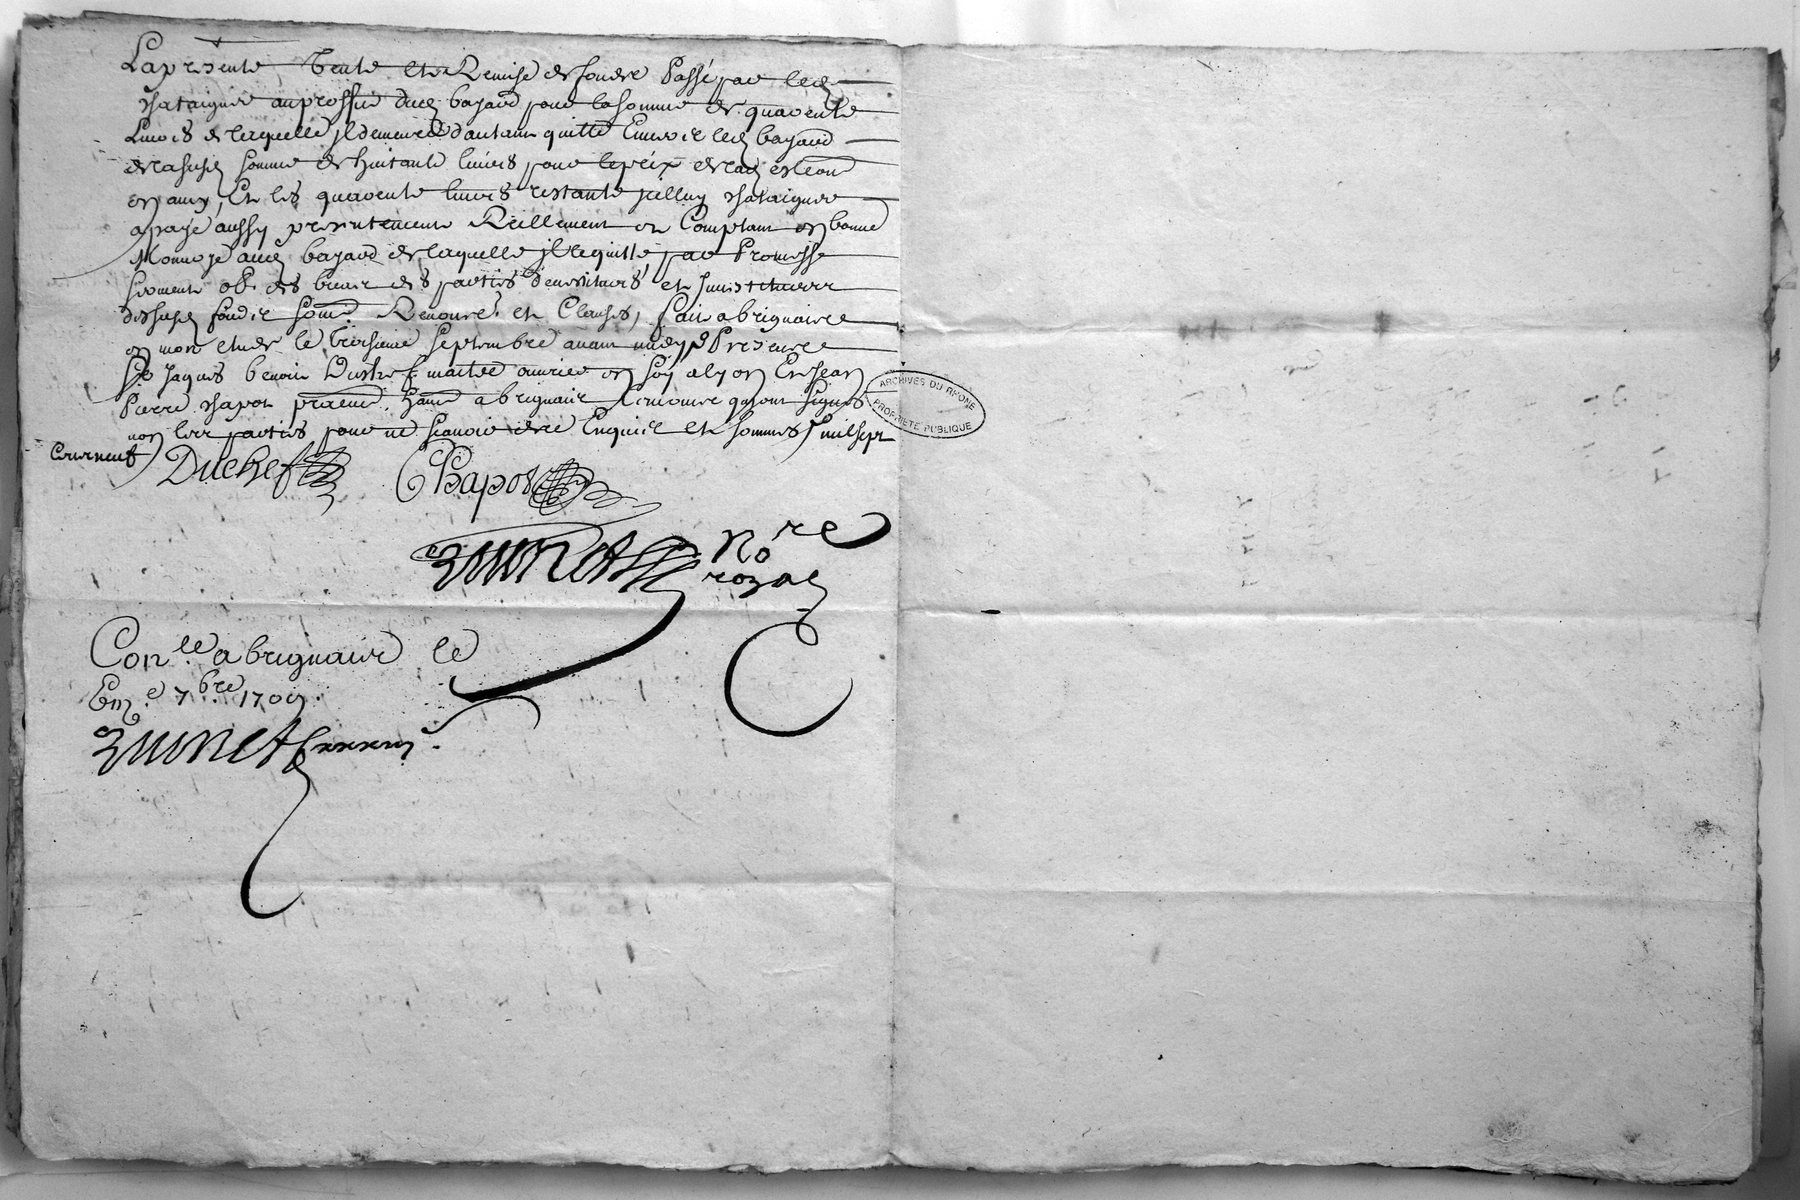 La presente Vente et Remise de fondz Passé par led
chataignier au proffit dud bajard pour la somme de quarente
Livres de laquelle jl demeure d'autant quitte Envers led bajard
de la susd somme de huitante livres pour le prix de lad
Et les quarente livres restante jcelluy chataignier
a payé aussy presentement Reillement et Comptant en bonne
Monnoye aud bajard de laquelle jl le quitte, par Promesse
serment ob. des biens des parties et
dessusd Renonce. et Clauses, fait a brignairie
en mon etude le troisieme septembre avant midy Presence
Sr Jaques benoit Duchef maitre ouvrier en soy a lyon Et Jean
Pierre chapot praticien hant a brignaire temoins qui ont signes
non lesd parties pour ne scavoir de ce Enquis et sommes, mil sept
Cent neuf
Duchef Chapot
No re
royal
Con. lle a brignaire le
7 bre 1709.
ARCHIVES DU RHONE
PROPRIETE PUBLIQUE